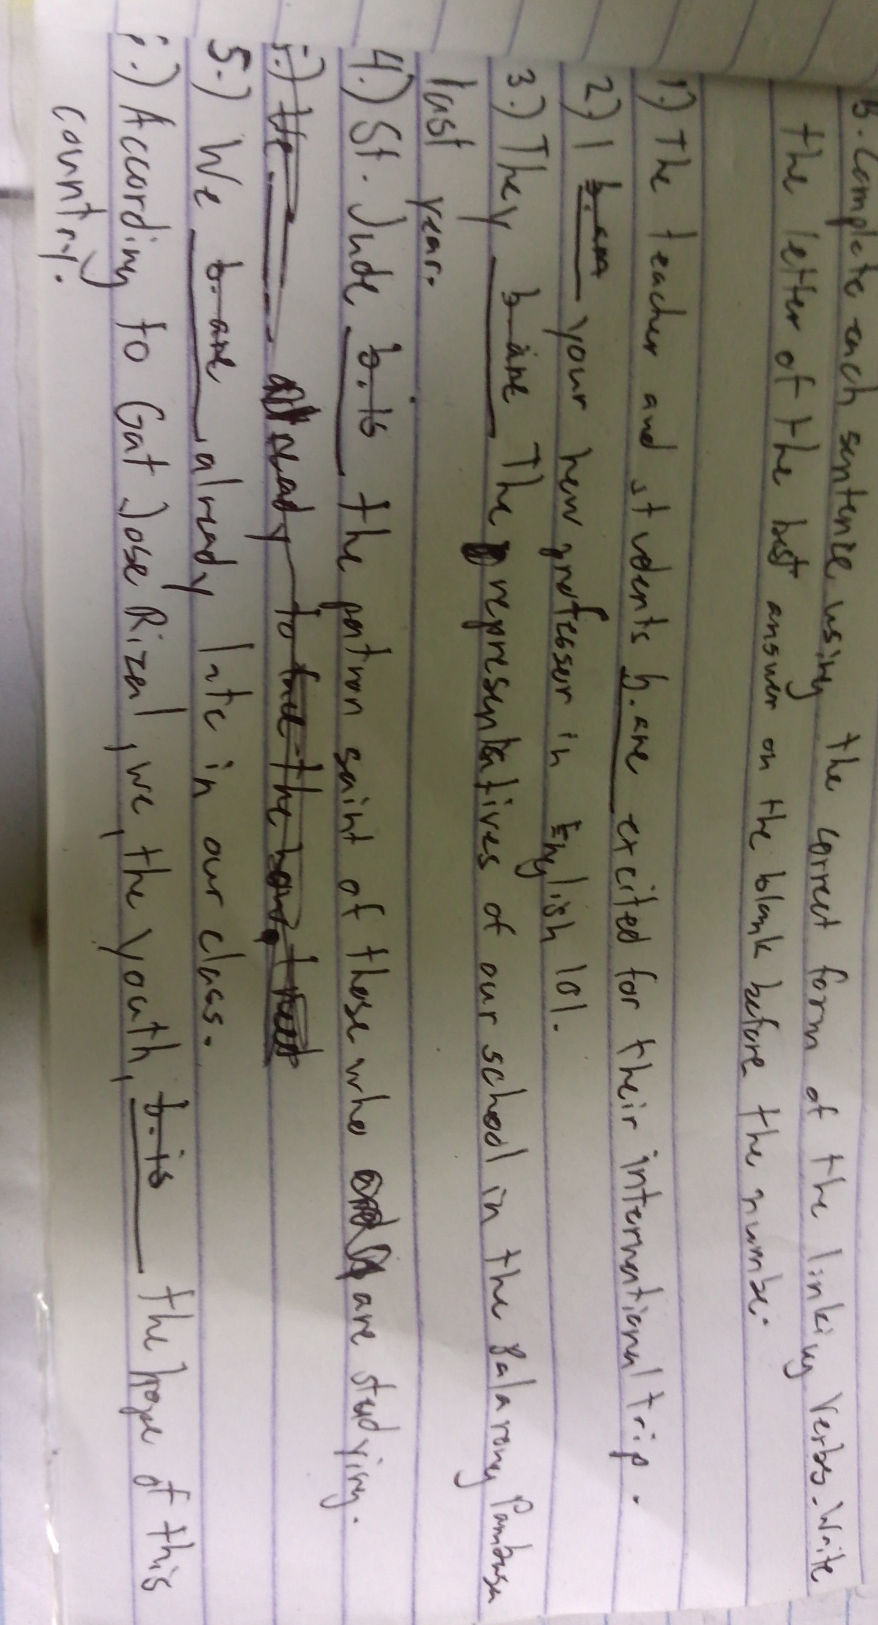 B. Complete each sentence using the correct form of the linking verbs. Write
the letter of the best answer on the blank before the number.
1.) The teacher and students b. are excited for their international trip.
2.) I b. am your new professor in English 101.
3.) They b are The representatives of our school in the Palarong Pambansa
last year.
4.) St. Jude b. is the patron saint of those who are studying.
already to the hour. I need
5.) We b. are already late in our class.
i.) According to Gat Jose Rizal, we, the youth, b. is the hope of this
country.